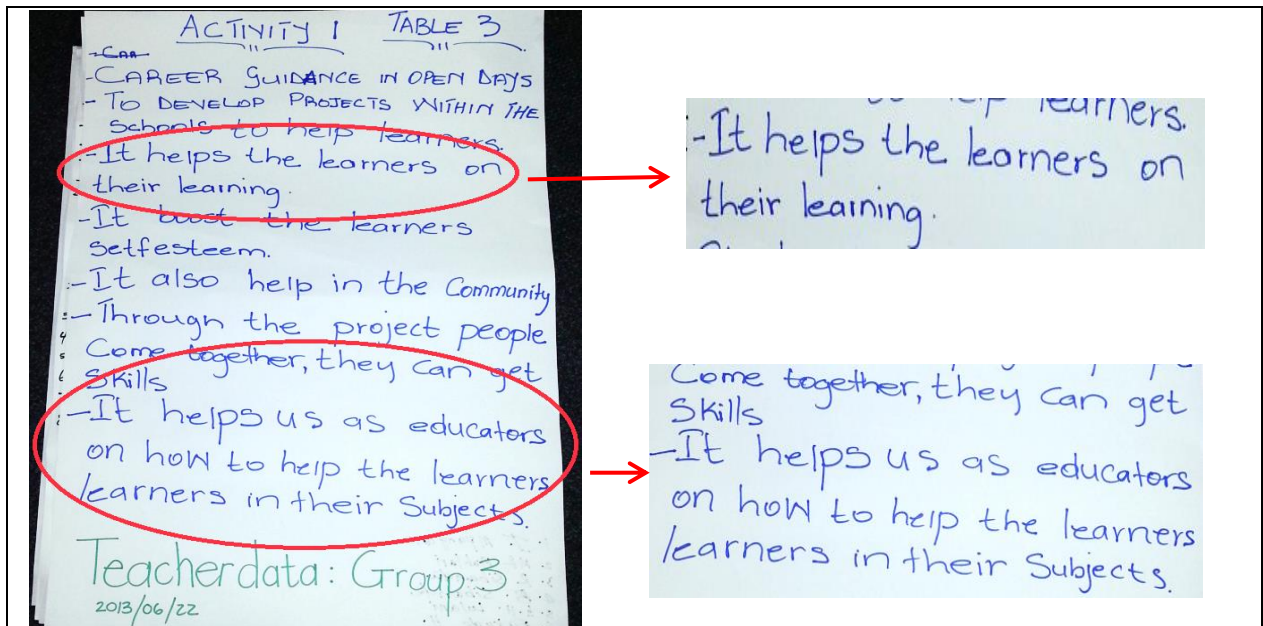 ACTIVITY 1 TABLE 3
- CAR
- CAREER GUIDANCE IN OPEN DAYS
- TO DEVELOP PROJECTS WITHIN THE
Schools to help learners.
- It helps the learners on
their learning.
- It boost the learners
setfesteem.
- It also help in the Community
- Through the project people
Come together, they can get
Skills
- It helps us as educators
on how to help the learners
learners in their Subjects.
Teacherdata: Group 3
2013/06/22
learners.
- It helps the learners on
their learning.
Come together, they can get
Skills
- It helps us as educators
on how to help the learners
learners in their Subjects.